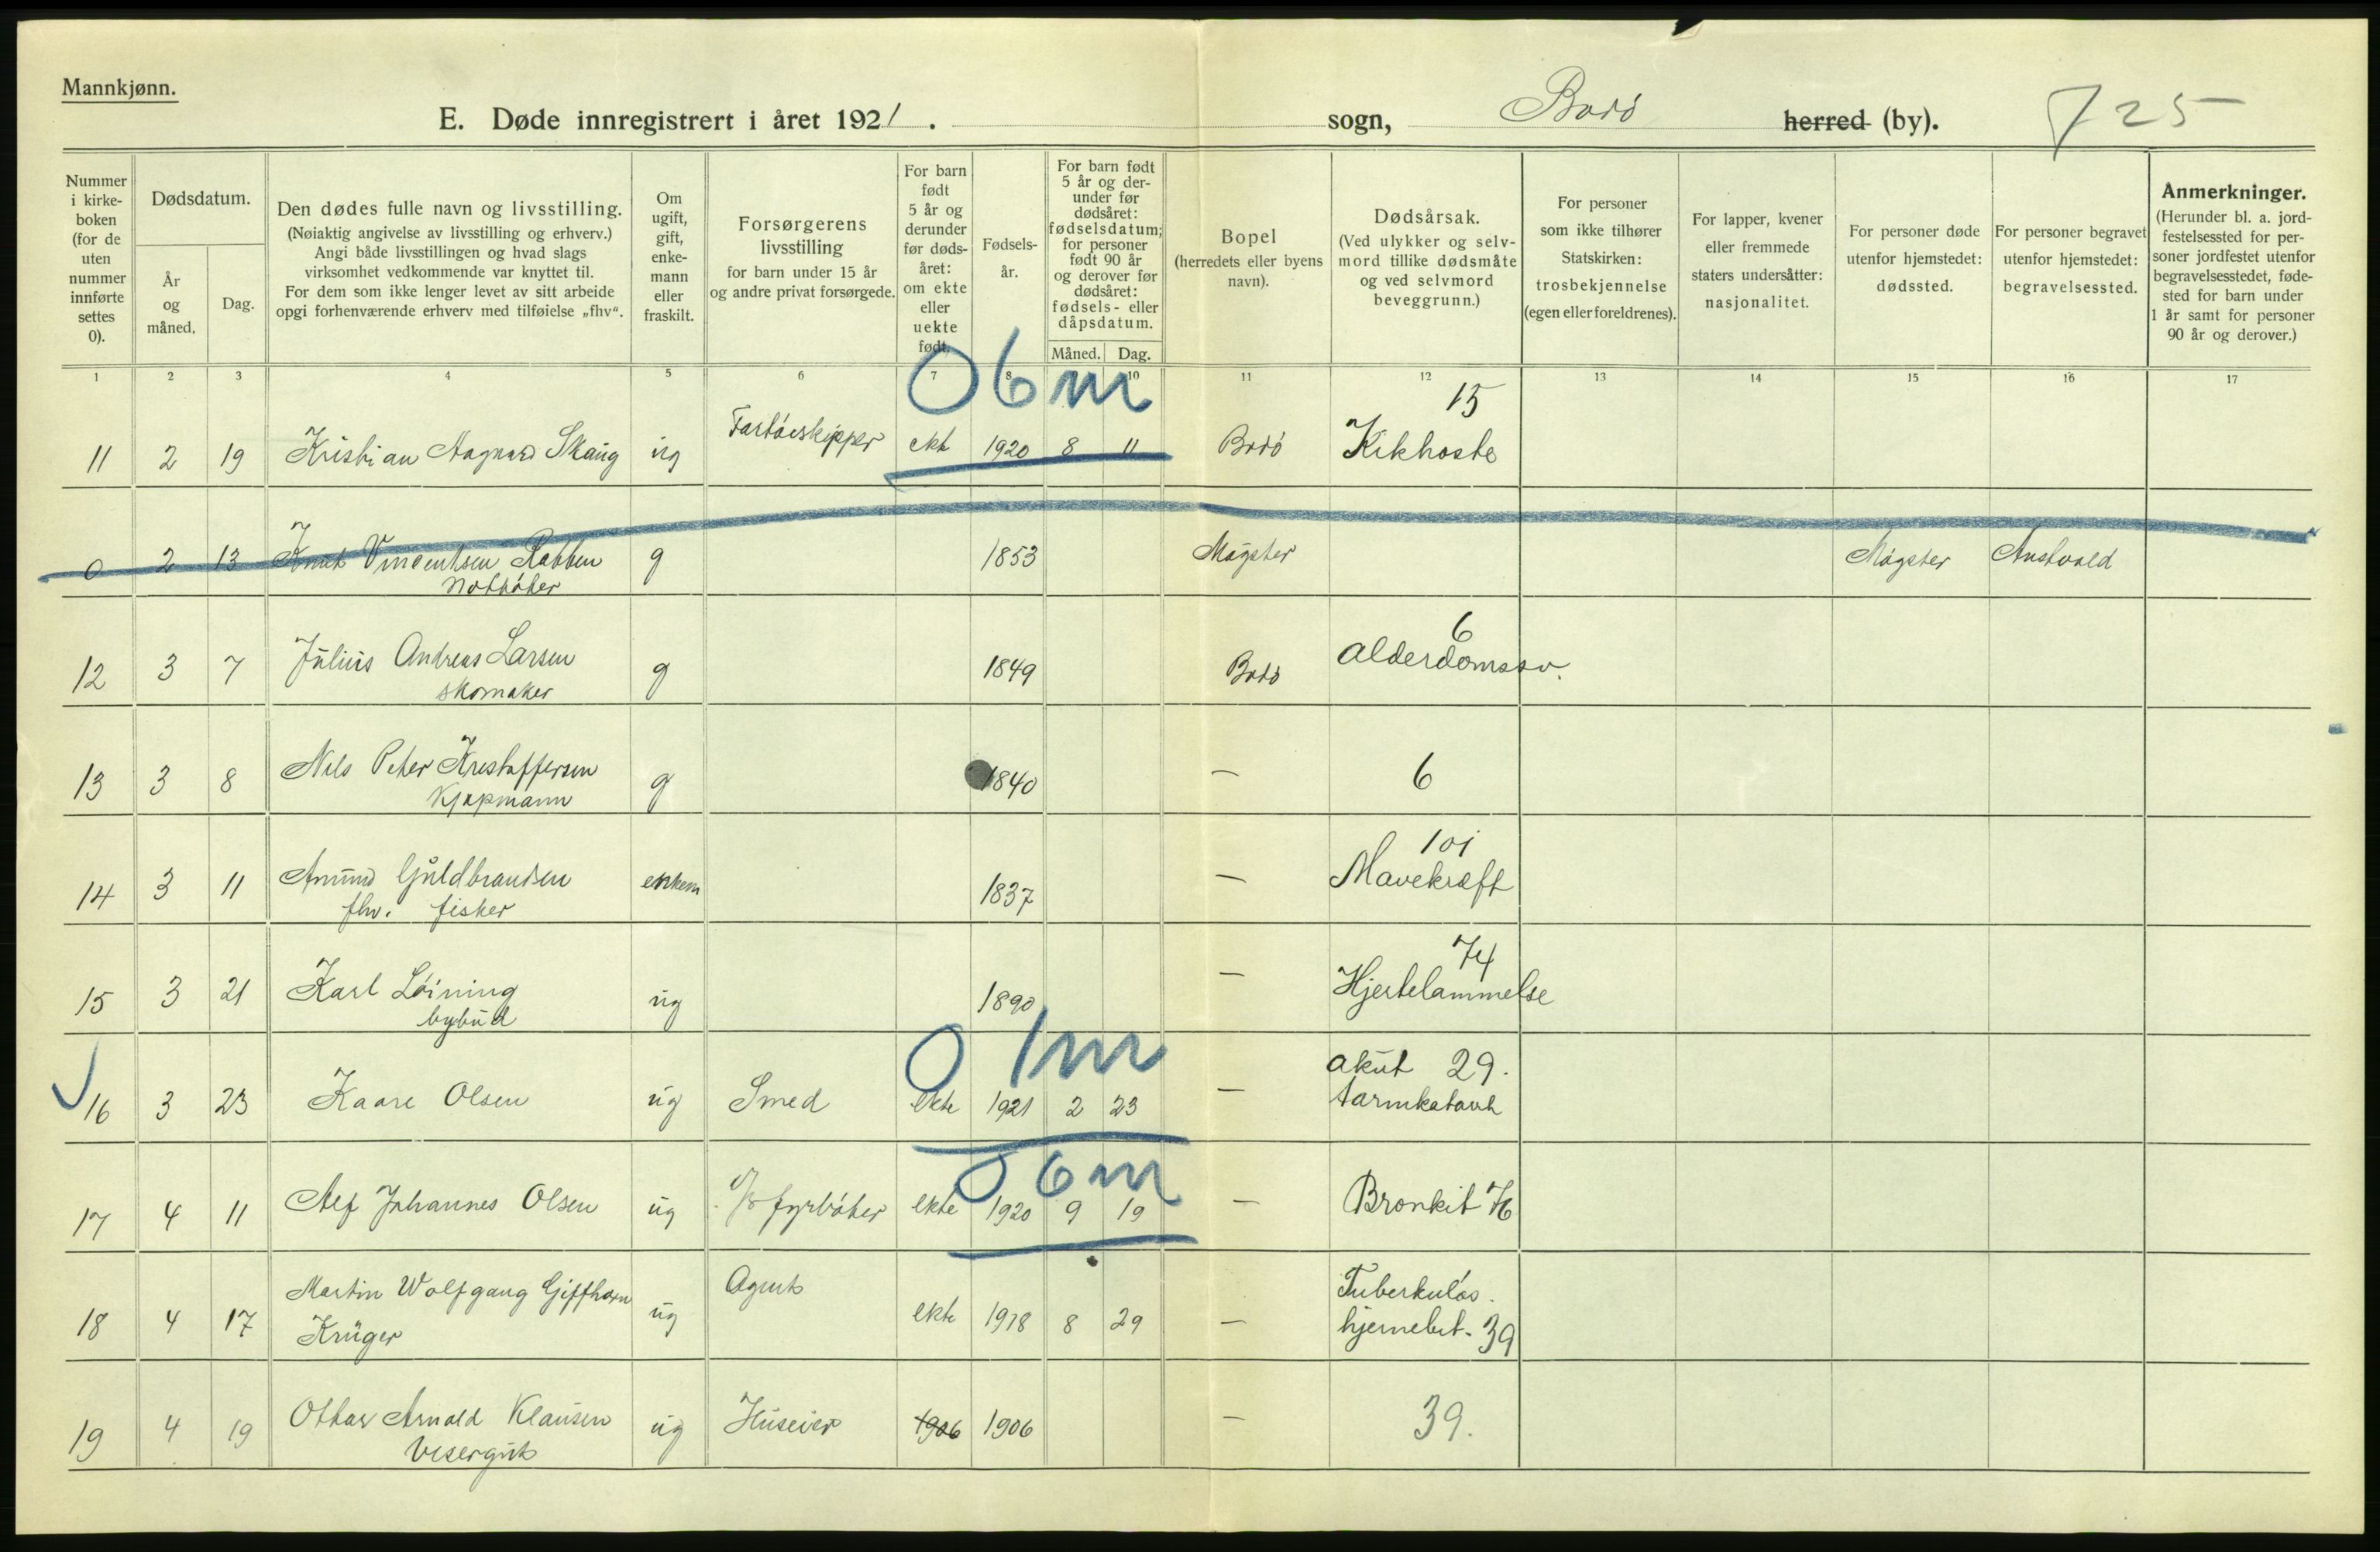 Mannkjønn.
E. Døde innregistrert i året 1921. sogn, Bodö herred (by). 725
Nummer i kirkeboken (for de uten nummer innførte settes 0).
Dødsdatum.
År og måned.
Dag.
Den dødes fulle navn og livsstilling.
(Nøiaktig angivelse av livsstilling og erhverv.)
Angi både livsstillingen og hvad slags
virksomhet vedkommende var knyttet til.
For dem som ikke lenger levet av sitt arbeide
opgi forhenværende erhverv med tilføielse „fhv“.
Om ugift, gift, enkemann eller fraskilt.
Forsørgerens livsstilling
for barn under 15 år
og andre privat forsørgede.
For barn født 5 år og derunder før dødsåret: om ekte eller uekte født.
Fødselsår.
For barn født 5 år og derunder før dødsåret: fødselsdatum; for personer født 90 år og derover før dødsåret: fødsels- eller dåpsdatum.
Måned. Dag.
Bopel
(herredets eller byens navn).
Dødsårsak.
(Ved ulykker og selvmord tillike dødsmåte og ved selvmord beveggrunn.)
For personer som ikke tilhører Statskirken: trosbekjennelse (egen eller foreldrenes).
For lapper, kvener eller fremmede staters undersåtter: nasjonalitet.
For personer døde utenfor hjemstedet: dødssted.
For personer begravet utenfor hjemstedet: begravelsessted.
Anmerkninger.
(Herunder bl. a. jordfestelsessted for personer jordfestet utenfor begravelsesstedet, fødested for barn under 1 år samt for personer 90 år og derover.)
1 2 3 4 5 6 7 8 10 11 12 13 14 15 16 17
0 6 m
15
11 2 19 Kristian Aagnard Skaug ug Fartöiskipper ekte 1920 8 11 Bodö Kikhoste
0 2 13 Knut Vincentsen Rabben g 1853 Mögster Mögster Austvold
Notböter
6
12 3 7 Julius Andreas Larsen g 1849 Bodö Alderdomssv.
skomaker
13 3 8 Nils Peter Kristoffersen g 1840 — 6
Kjøpmann
101
14 3 11 Amund Guldbrandsen enkem 1837 — Mavekræft
fhv. fisker
74
15 3 21 Karl Löining ug 1890 — Hjertelammelse
bybud
0 1 m
akut 29.
16 3 23 Kaare Olsen ug Smed ekte 1921 2 23 — tarmkatarrh
0 6 m
17 4 11 Alf Johannes Olsen ug fyrböter ekte 1920 9 19 — Bronkit
18 4 17 Martin Wolfgang Giffhorn ug Agent ekte 1918 8 29 — Tuberkulös.
Krüger hjernebet. 39
19 4 19 Ottar Arnold Klausen ug Huseier 1906 1906 — 39.
Visergut